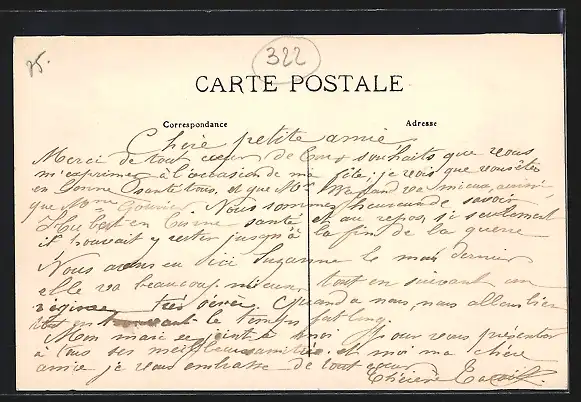 25.
322
CARTE POSTALE
Correspondance
Adresse
Chère petite amie
Merci de tout cœur de tous souhaits que vous
m'exprimer à l'occasion de ma fête; je vois que vous êtes
en bonne santé tous, et que Mr va mieux,
que Mme Nous sommes heureux de savoir
Hubert en bonne santé et au repos, si seulement
il pouvait y rester jusqu'à la fin de la guerre
Nous avons eu ici Suzanne le mois dernier
elle va beaucoup mieux, tout en suivant un
régime très sévère. Quand a nous, nous allons bien
tout en trouvant le temps fort long.
Mon mari se joint à moi pour vous présenter
à tous ses meilleures amitiés. et moi ma chère
amie je vous embrasse de tout cœur